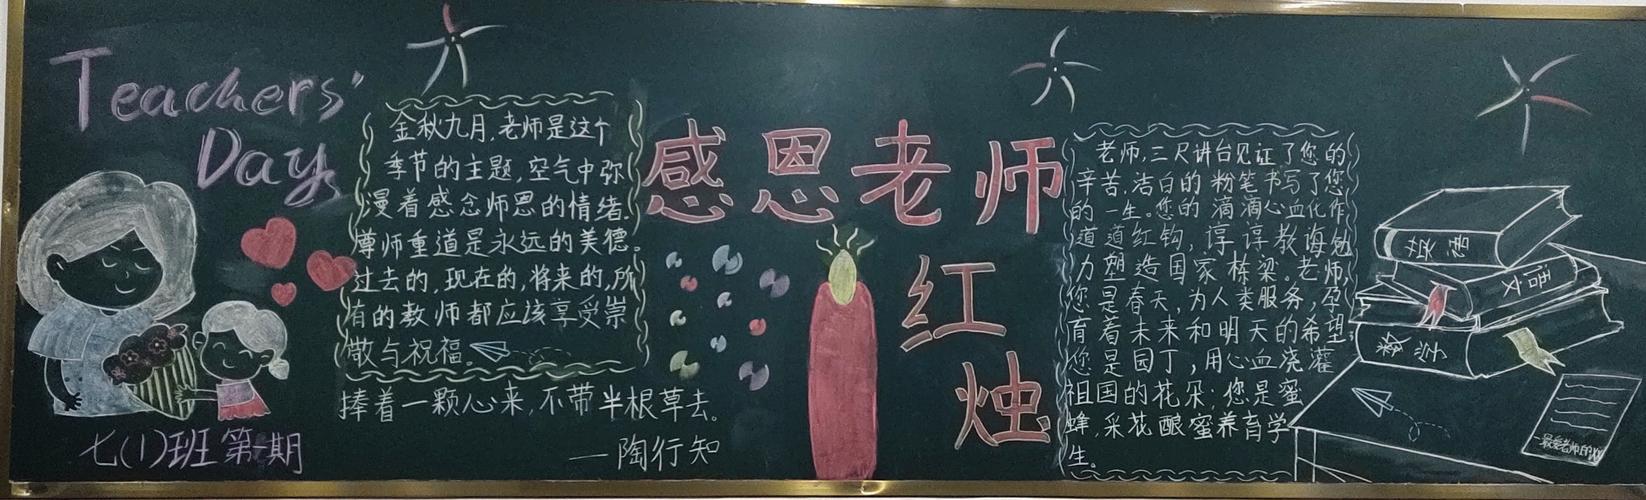 Teachers'
Day
七(1)班第一期
金秋九月,老师是这个
季节的主题,空气中弥
漫着感念师恩的情绪.
尊师重道是永远的美德。
过去的,现在的,将来的,所
有的教师都应该享受崇
敬与祝福。
捧着一颗心来,不带半根草去。
—陶行知
感恩老师
红
烛
老师,三尺讲台见证了您的
辛苦,洁白的粉笔书写了您
的一生。您的滴滴心血化作
道道红钩,谆谆教诲勉
力塑造国家栋梁。老师,
您是春天,为人类服务,孕
育着未来和明天的希望;
您是园丁,用心血浇灌
祖国的花朵;您是蜜
蜂,采花酿蜜养育学
生。
英语
语文
数学